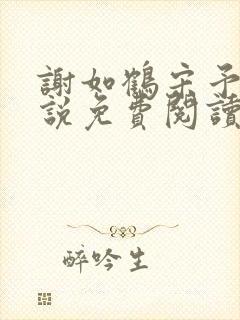 謝如鶴宋予
說免費閱讀
醉吟生